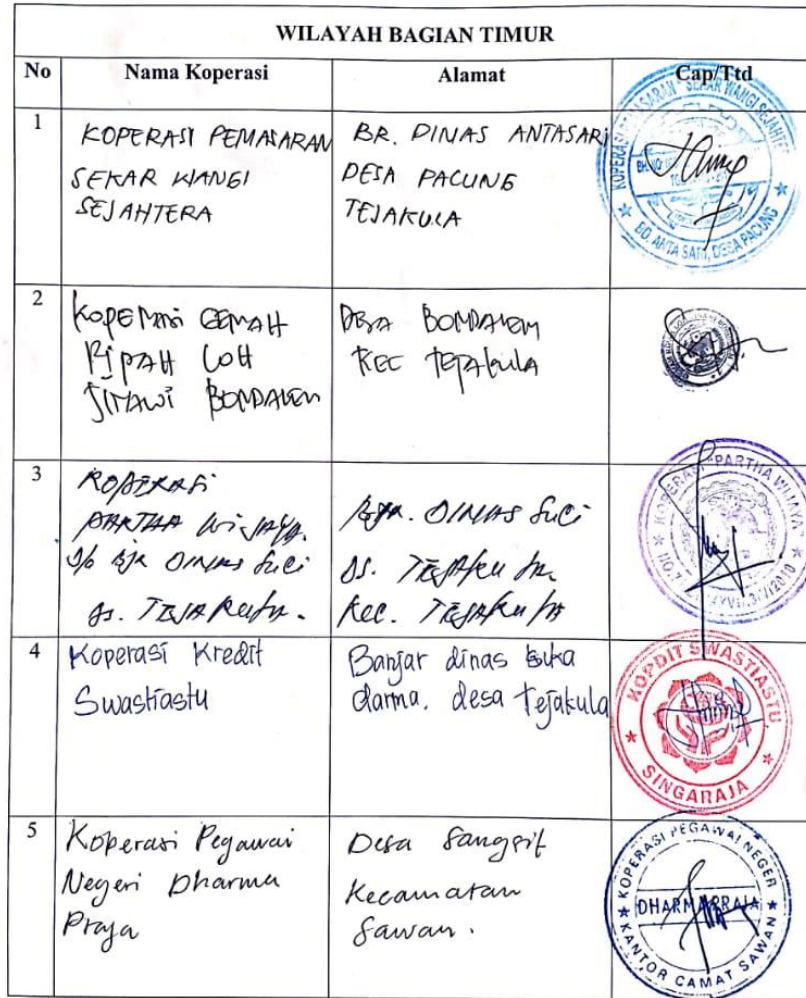 WILAYAH BAGIAN TIMUR
No Nama Koperasi Alamat Cap/Ttd
1
KOPERASI PEMASARAN
SEKAR WANGI
SEJAHTERA
BR. DINAS ANTASARI
DESA PACUNG
TEJAKULA
KOPERASI PEMASARAN "SEKAR WANGI SEJAHTERA"
BD. ANTA SARI, DESA PACUNG
2
Koperasi GEMAH
RIPAH LOH
JINAWI BONDALEM
DESA BONDALEM
KEC TEJAKULA
3
KOPERASI
PARTHA WIJAYA.
d/a Bjr DINAS Suci
Ds. TEJAKULA.
Bjr. DINAS Suci
DS. TEJAKULA.
Kec. TEJAKULA
KOPERASI "PARTHA WIJAYA"
4
Koperasi Kredit
Swastiastu
Banjar dinas suka
darma, desa Tejakula
KOPDIT SWASTIASTU
SINGARAJA
5
Koperasi Pegawai
Negeri Dharma
Praja
Desa Sangsit
Kecamatan
Sawan.
KOPERASI PEGAWAI NEGERI
DHARMA PRAJA
KANTOR CAMAT SAWAN